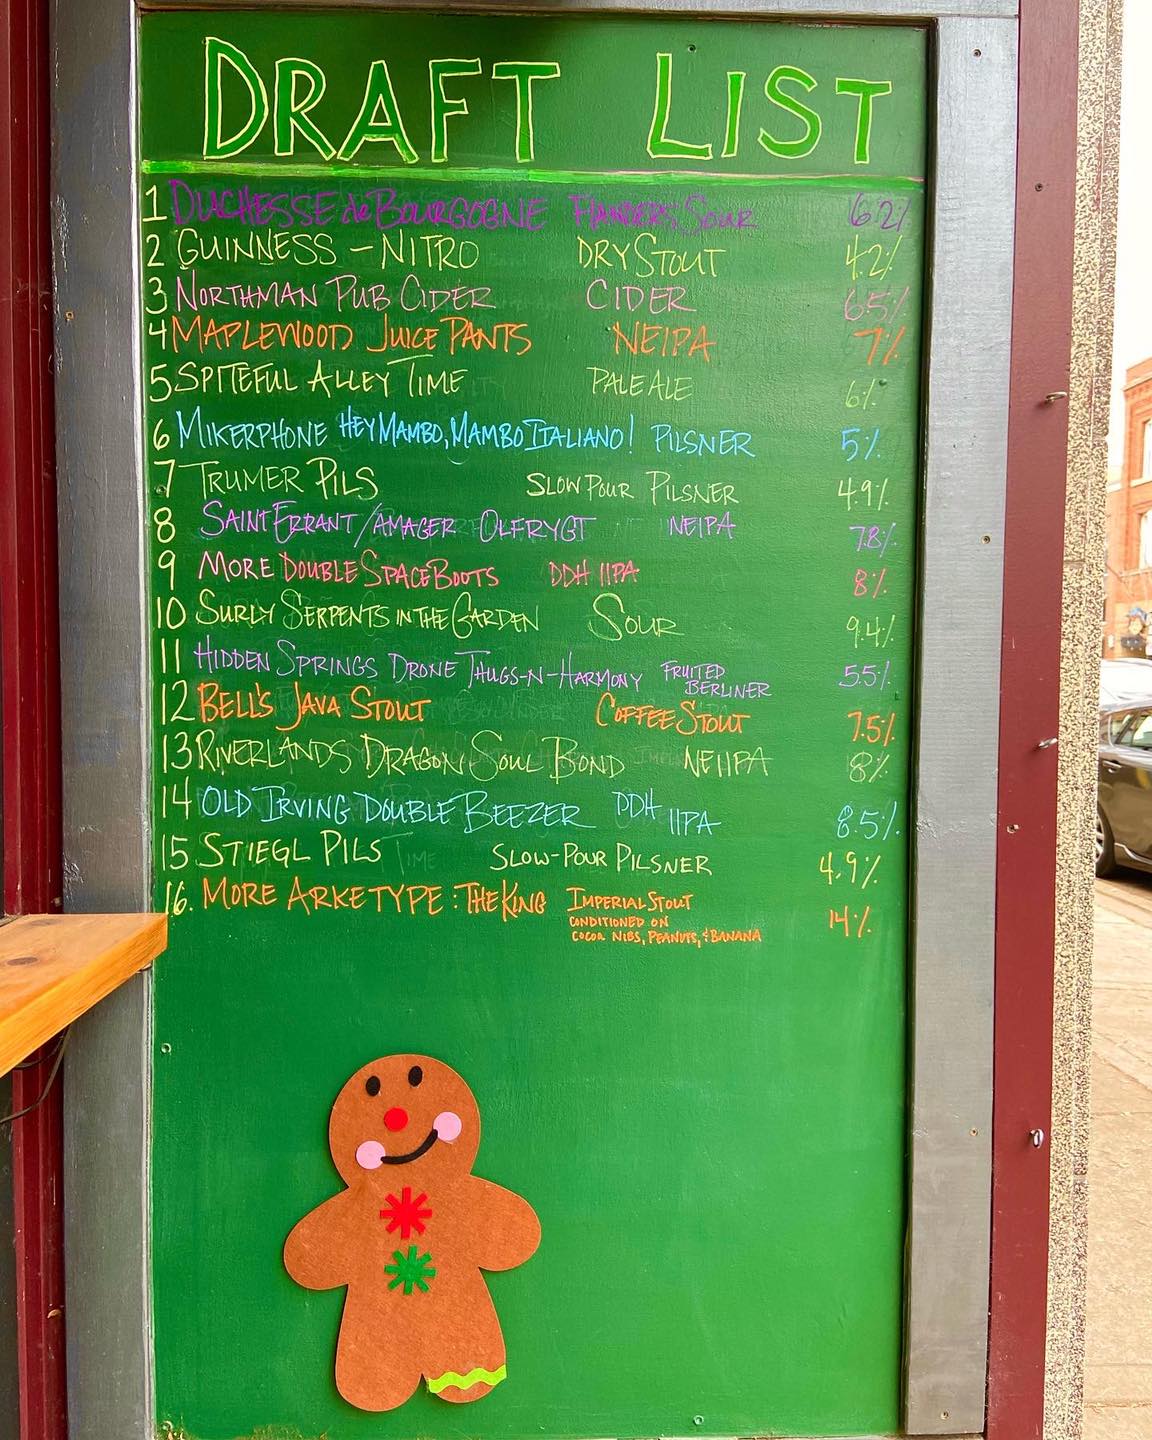 DRAFT LIST
1 DUCHESSE de BOURGOGNE FLANDERS SOUR 6.2%
2 GUINNESS - NITRO DRY STOUT 4.2%
3 NORTHMAN PUB CIDER CIDER 6.5%
4 MAPLEWOOD JUICE PANTS NEIPA 7%
5 SPITEFUL ALLEY TIME PALE ALE 6%
6 MIKERPHONE HEY MAMBO, MAMBO ITALIANO! PILSNER 5%
7 TRUMER PILS SLOW POUR PILSNER 4.9%
8 SAINT ERRANT/AMAGER OLFRYGT NEIPA 7.8%
9 MORE DOUBLE SPACE BOOTS DDH IIPA 8%
10 SURLY SERPENTS IN THE GARDEN SOUR 9.4%
11 HIDDEN SPRINGS DRONE THUGS-N-HARMONY FRUITED 5.5%
BERLINER
12 BELL'S JAVA STOUT COFFEE STOUT 7.5%
13 RIVERLANDS DRAGON SOUL BOND NEIIPA 8%
14 OLD IRVING DOUBLE BEEZER DDH IIPA 8.5%
15 STIEGL PILS SLOW-POUR PILSNER 4.9%
16. MORE ARKETYPE: THE KING IMPERIAL STOUT 14%
CONDITIONED ON
COCOA NIBS, PEANUTS, & BANANA